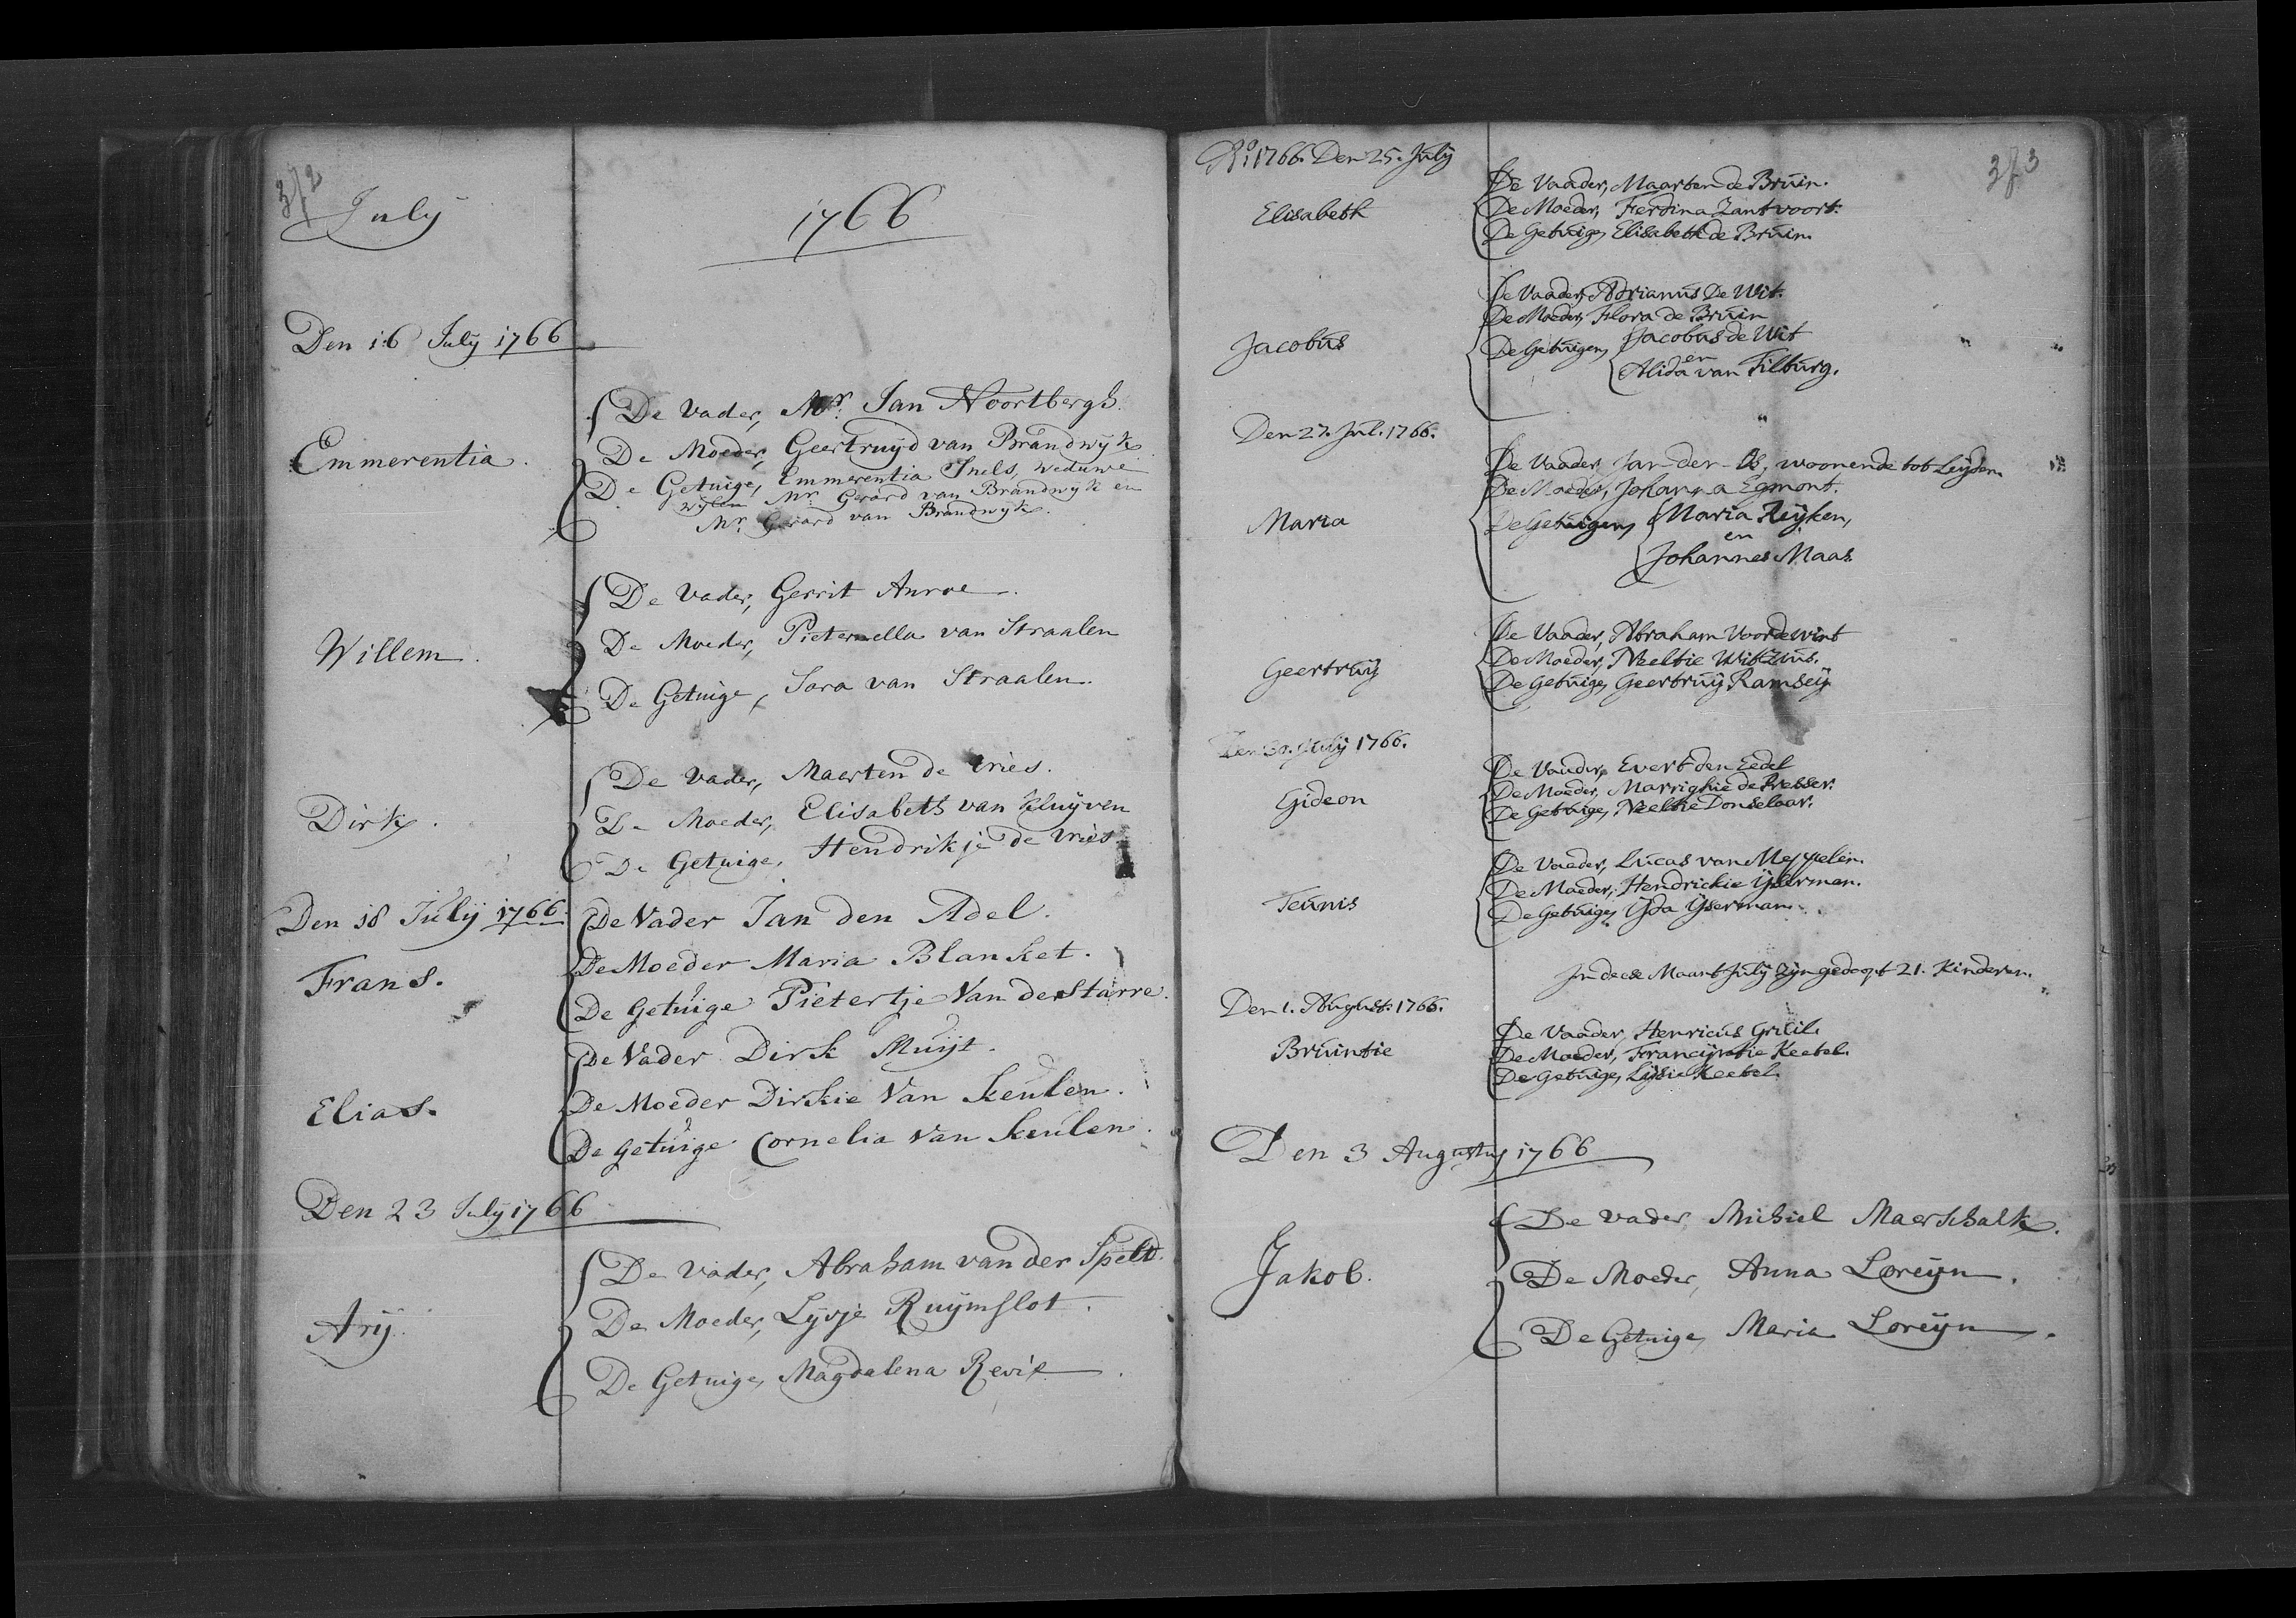 372
July
1766
Den 16 July 1766
Emmerentia.
De Vader, Mr. Jan Noortbergh.
De Moeder, Geertruyd van Brandwyk
De Getuige, Emmerentia Snels, weduwe
wylen Mr. Gerard van Brandwyk en
Mr. Gerard van Brandwyk.
Willem.
De Vader, Gerrit Anroe.
De Moeder, Pieternella van Straalen
De Getuige, Sara van Straalen.
Dirk.
De Vader, Maerten de Vries.
De Moeder, Elisabeth van Kluyven
De Getuige, Hendrikje de Vries
Den 18 Julij 1766.
Frans.
De Vader Jan den Adel.
De Moeder Maria Blanket.
De Getuige Pietertje Van der Starre.
Elias.
De Vader Dirk Muijt.
De Moeder Dirkie Van Keulen.
De Getuige Cornelia Van Keulen.
Den 23 July 1766
Arij.
De Vader, Abraham van der Spelt.
De Moeder, Lysje Ruymslot.
De Getuige, Magdalena Revix.
373
Ao. 1766. Den 25. July
Elisabeth
De Vaader, Maarten de Bruin.
De Moeder, Ferdina Zantvoort.
De Getuige, Elisabeth de Bruin.
Jacobus
De Vaader, Adrianus De Wit.
De Moeder, Flora de Bruin
De Getuigen, Jacobus de Wit
en
Alida van Tilburg.
Den 27. Jul. 1766.
Maria
De Vaader, Jan der Os, woonende tot Leyden.
De Moeder, Johanna Egmont.
De Getuigen, Maria Reyken,
en
Johannes Maas.
Geertruy
De Vaader, Abraham Voordewint
De Moeder, Neeltie Witzius.
De Getuige, Geertruy Ramsey
Den 30. July 1766.
Gideon
De Vaader, Evert den Eedel
De Moeder, Marrighie de Presser.
De Getuige, Neeltie Donselaar.
Teunis
De Vaader, Lucas van Meypelen.
De Moeder, Hendrickie Yserman.
De Getuige, Yda Yserman.
In deese Maant July zyn gedoopt 21. Kinderen.
Den 1. August. 1766.
Bruintie
De Vaader, Henricus Gruil.
De Moeder, Francyntie Keetel.
De Getuige, Lysie Keetel.
Den 3 Augustus 1766
Jakob.
De Vader, Michiel Maerschalk.
De Moeder, Anna Loreyn.
De Getuige, Maria Loreyn.